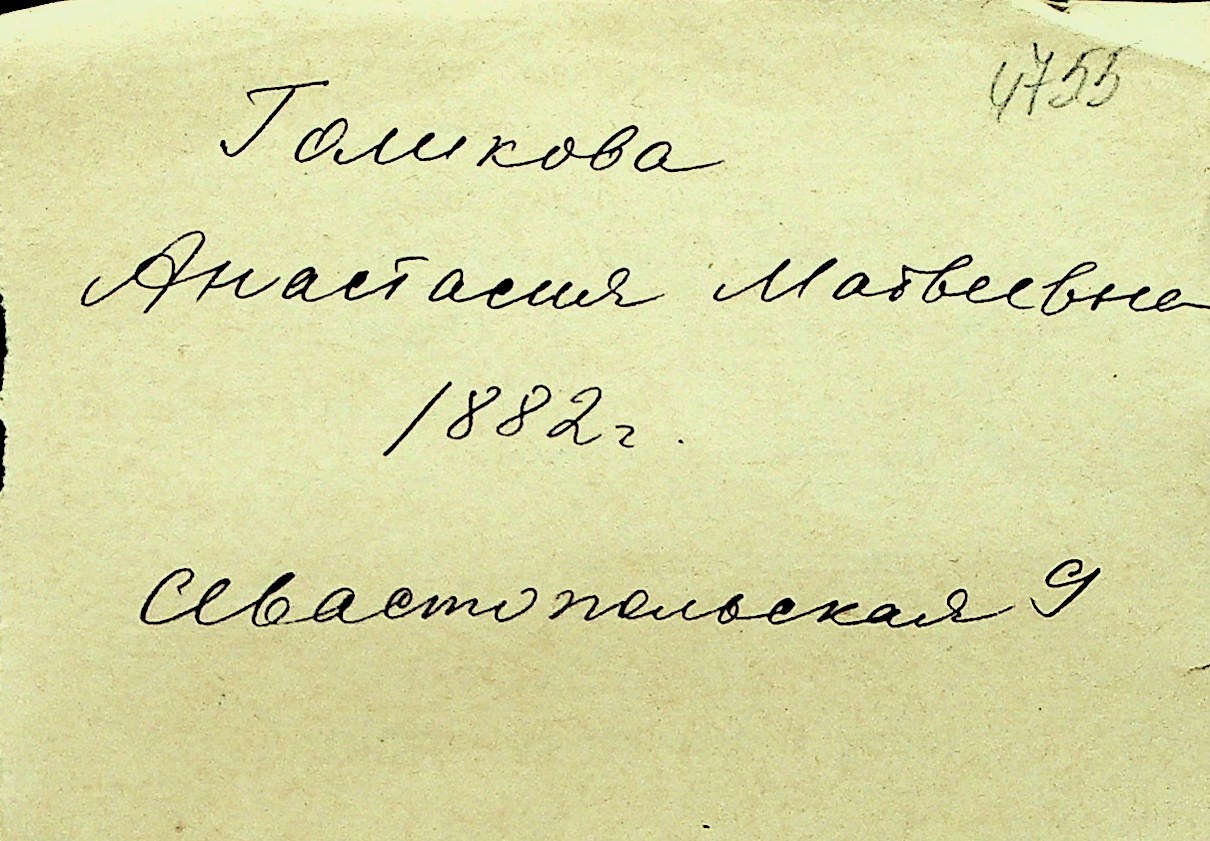 4755
Голикова
Анастасия Матвеевна
1882г.
Севастопольская 9